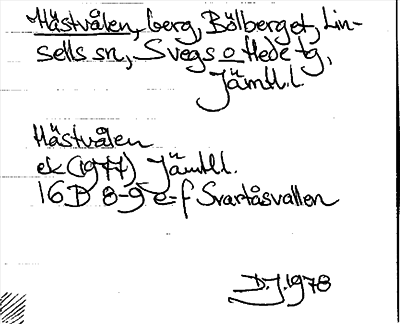 Hästvålen, berg, Bölberget, Lin-
sells sn, Svegs o Hede tg,
Jämtl.l.
Hästvålen
ek (1977) Jämtl.l.
16D 8-9 e-f Svartåsvallen
D.J. 1978